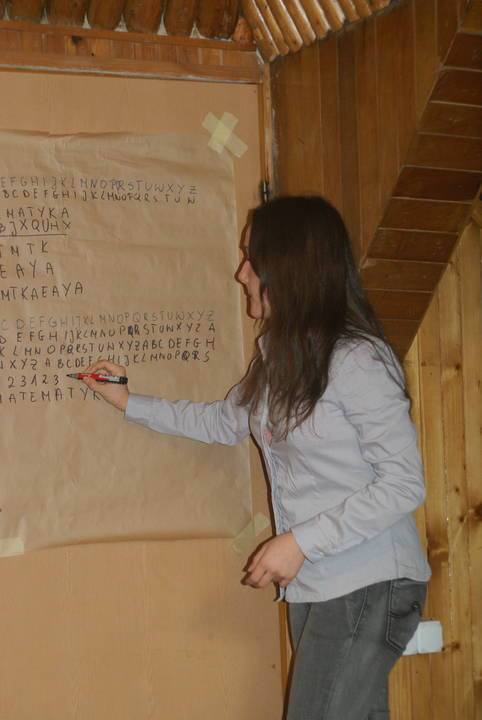 EFGHIJKLMNOPQRSTUWXYZ
ABCDEFGHIJKLMNOPQRSTUW
MATYKA
BJXQUHX
TMTK
EAYA
MTKAEAYA
C DEFGHIJKLMNOPQRSTUWXYZ
D EFGHIJKLMNOPQRSTUWXYZA
KLMNOPQRSTUWXYZABCDEFGH
WXYZABCDEFGHIJKLMNOPQRS
23123
MATEMATYK